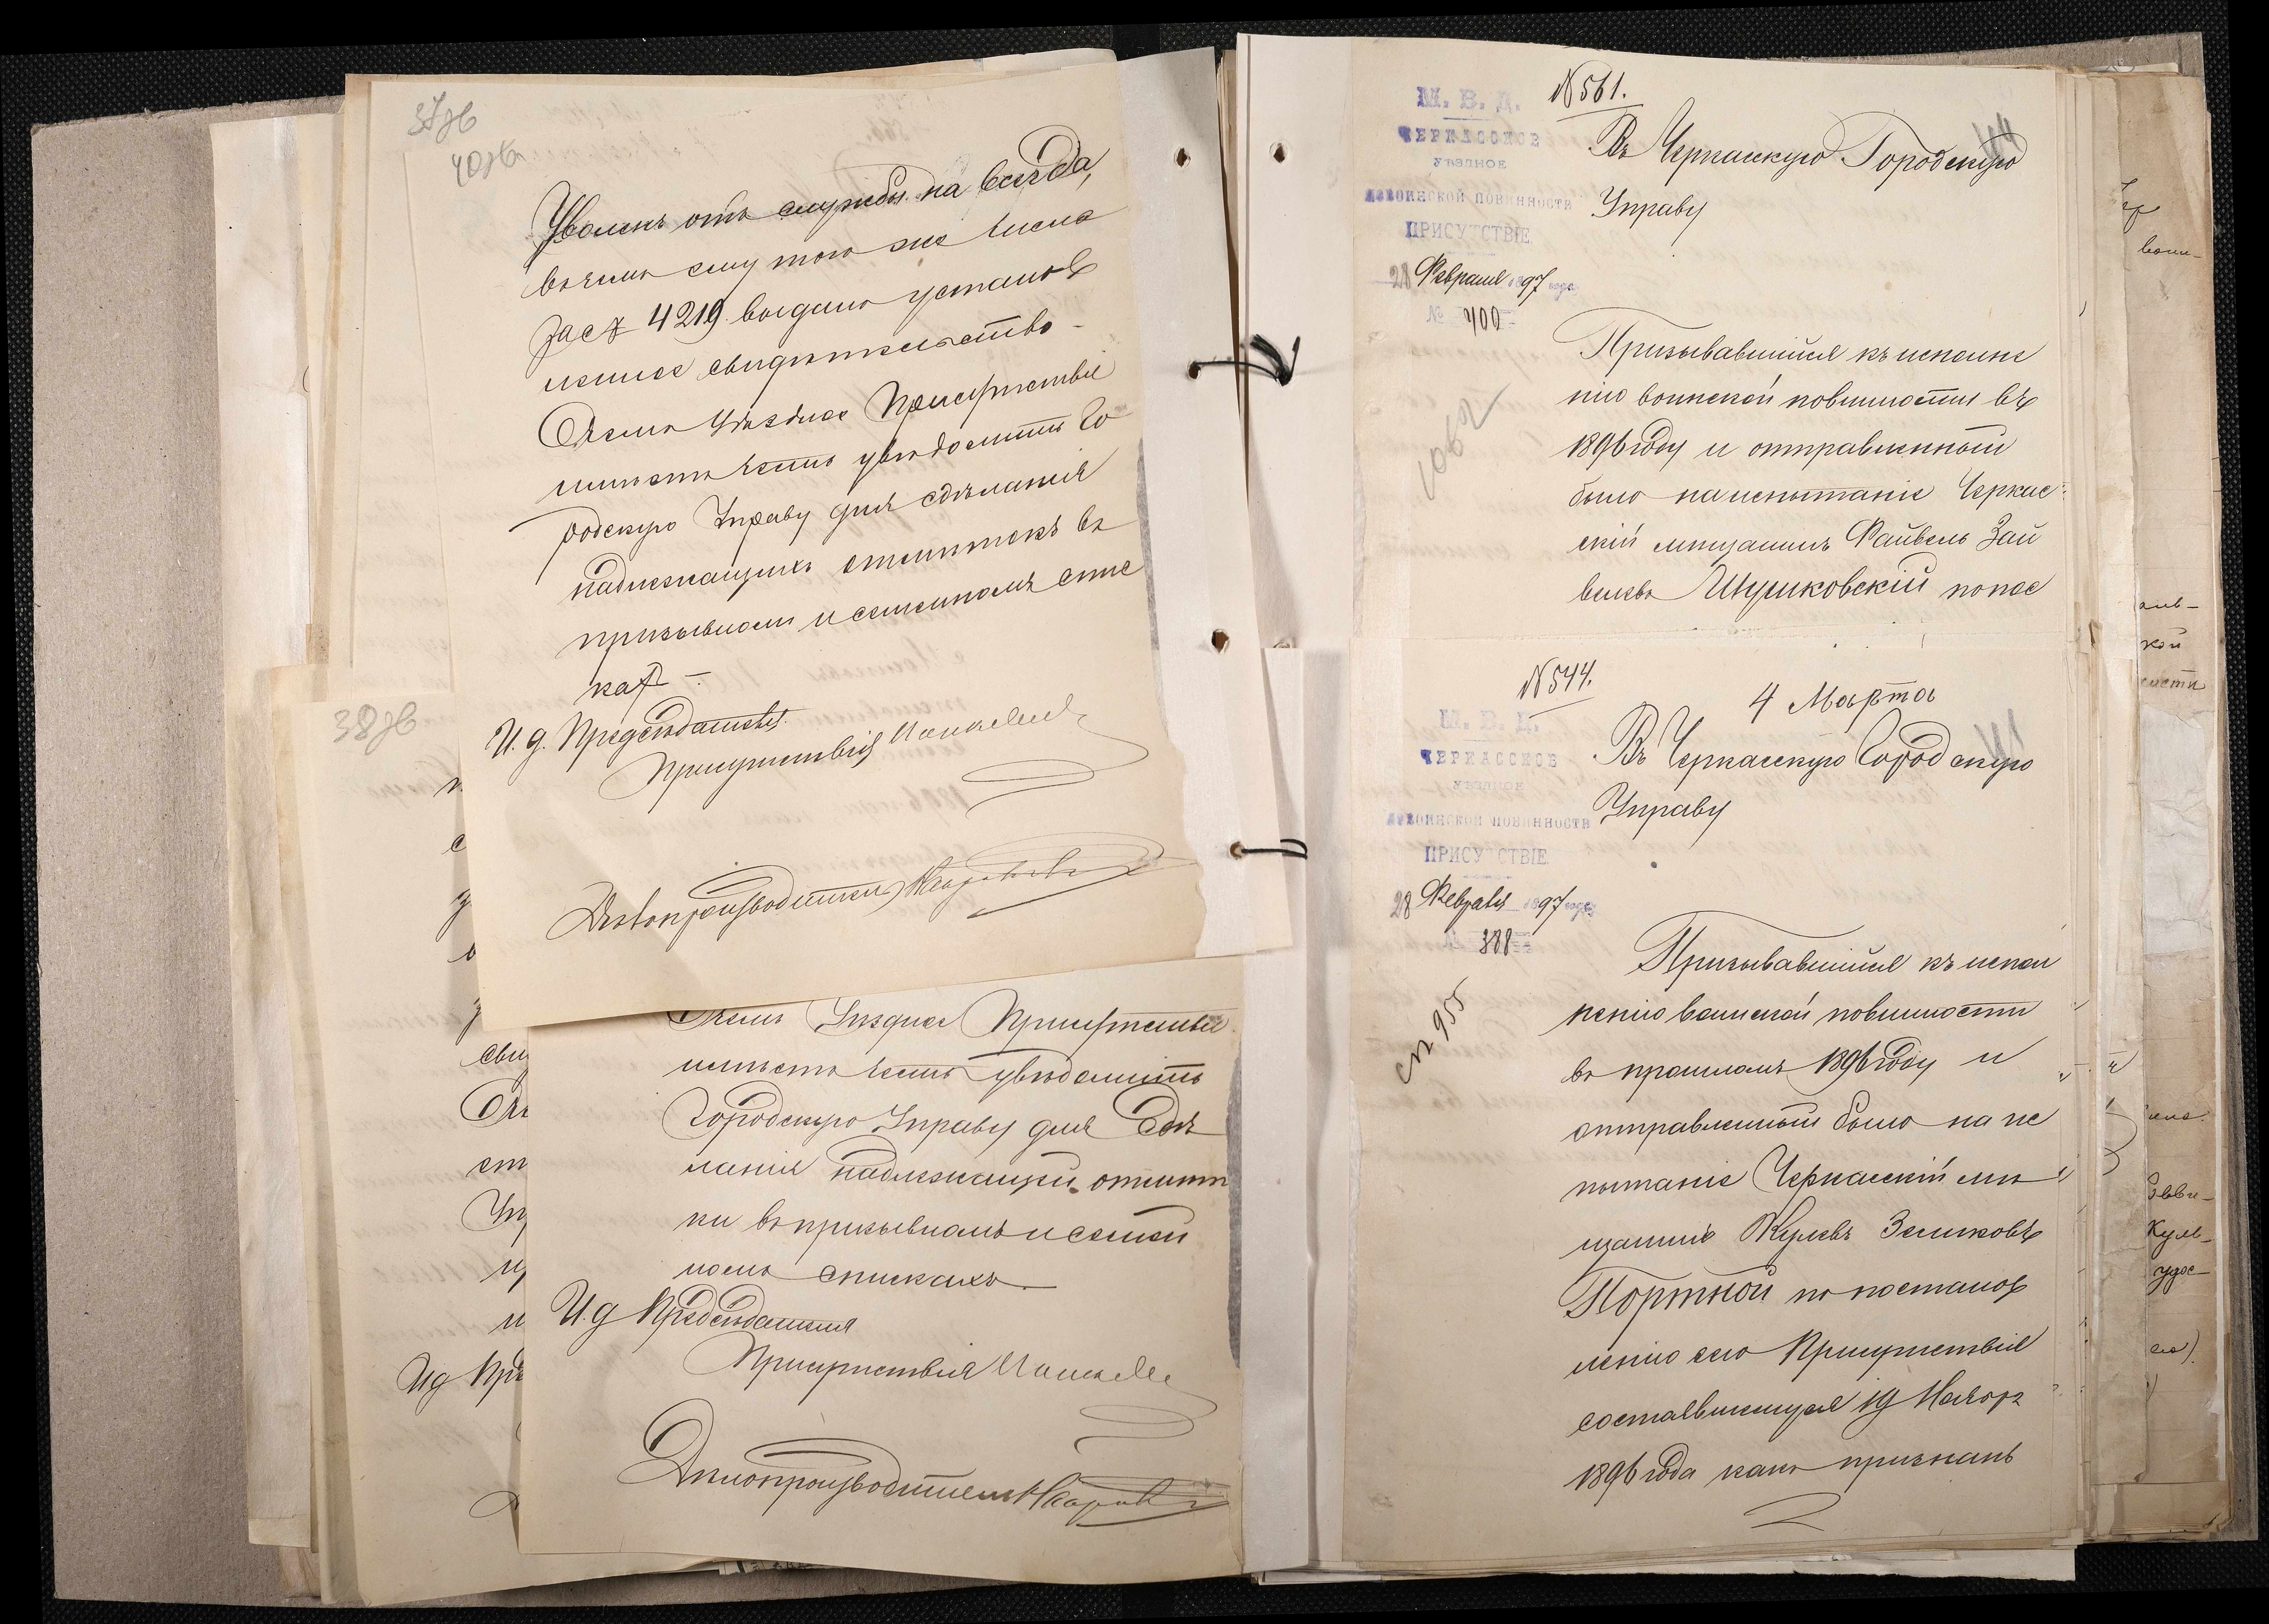 37об
40об
Уволенъ отъ службы на всегда,
въ чемъ ему того же числа
за № 4219 выдано установ
ленное свидѣтельство.
О чемъ Уѣздное Присутствіе
имѣетъ честь увѣдомить Го
родскую Управу для сдѣланія
надлежащихъ отмѣтокъ въ
призывномъ и семейномъ спис
кахъ
И. д. Предсѣдателя
Присутствія
Дѣлопроизводитель
38об
О чемъ Уѣздное Присутствіе
имѣетъ честь увѣдомить
Городскую Управу для сдѣ
ланія надлежащей отмѣт
ки въ призывномъ и семей
номъ спискахъ.
И. д Предсѣдателя
Присутствія
Дѣлопроизводитель
№ 561.
М. В. Д.
ЧЕРКАССКОЕ
УѢЗДНОЕ
ПО ВОИНСКОЙ ПОВИННОСТИ
ПРИСУТСТВІЕ
28 Февраля 1897 года
№ 400
Въ Черкасскую Городскую
Управу
Призывавшійся къ исполне
нію воинской повинности въ
1896 году и отправленный
было на испытаніе Черкас
скій мѣщанинъ Файвель Зай
велевъ Шушковскій по пос
№ 544.
4 Марта
М. В. Д.
ЧЕРКАССКОЕ
УѢЗДНОЕ
ПО ВОИНСКОЙ ПОВИННОСТИ
ПРИСУТСТВІЕ
28 Февраля 1897 года
№ 388
Въ Черкасскую Городскую
Управу
сп 955
Призывавшійся къ испол
ненію воинской повинности
въ прошломъ 1896 году и
отправленный было на ис
пытаніе Черкасскій мѣ
щанинъ Зеликовъ
Портной по постанов
ленію сего Присутствія
состоявшемуся 19 Ноября
1896 года какъ признанъ